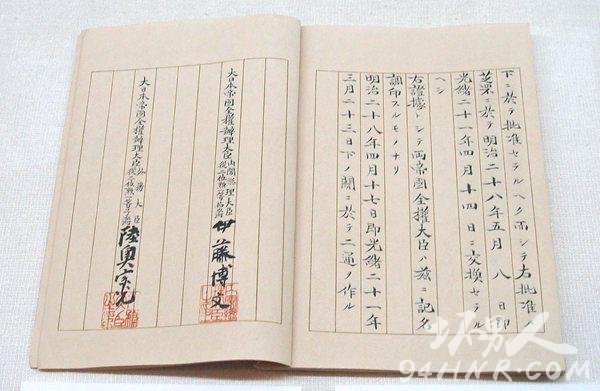 下ニ於テ批准セラルヘク而シテ右批准ハ
芝罘ニ於テ明治二十八年五月八日即
光緒二十一年四月十四日ニ交換セラル
ヘシ
右證據トシテ両帝國全權大臣ハ茲ニ記名
調印スルモノナリ
明治二十八年四月十七日即光緒二十一年
三月二十三日下ノ關ニ於テ二通ヲ作ル
大日本帝國全權辦理大臣内閣總理大臣從二位勲一等伯爵伊藤博文
大日本帝國全權辦理大臣外務大臣從二位勲一等子爵陸奥宗光
男人
94HNR.COM